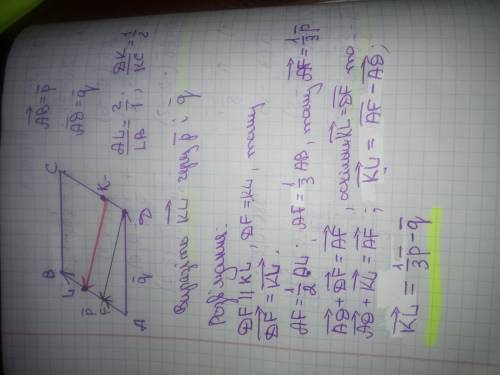 B C
L K
P
F
A q̅ D
A͞B⃗=p̅
A͞D⃗=q̅
AL/LB = 2/1; DK/KC = 1/2
Виразіть K͞L⃗ через p̅ і q̅
Розв'язання:
DF || KL, DF = KL, тому
D͞F⃗ = K͞L⃗.
AF = 1/2 AL; AF = 1/3 AB, тому A͞F⃗ = 1/3 p̅
A͞D⃗ + D͞F⃗ = A͞F⃗, оскільки K͞L⃗ = D͞F⃗ то -
A͞D⃗ + K͞L⃗ = A͞F⃗; K͞L⃗ = A͞F⃗ - A͞D⃗;
K͞L⃗ = 1/3 p̅ - q̅